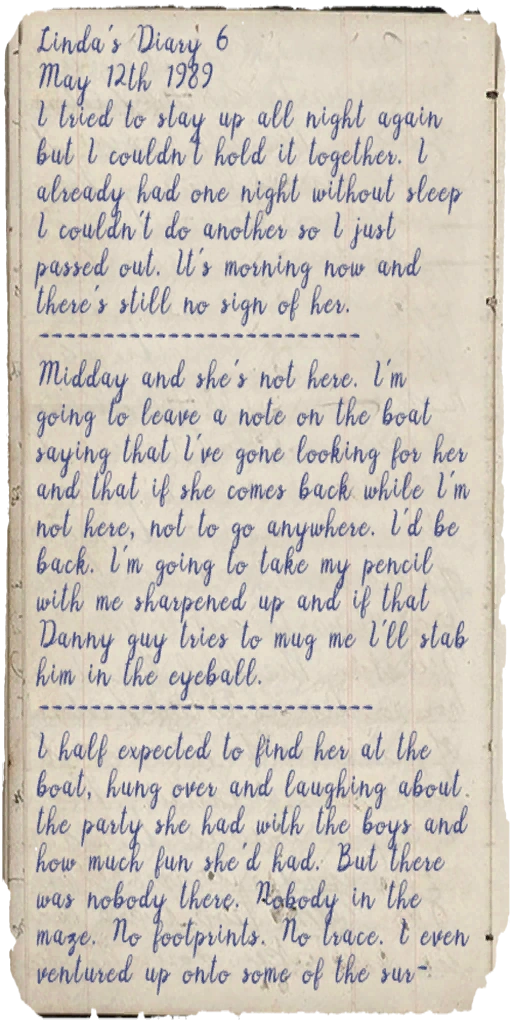 Linda's Diary 6
May 12th 1989
I tried to stay up all night again
but I couldn't hold it together. I
already had one night without sleep
I couldn't do another so I just
passed out. It's morning now and
there's still no sign of her.
--------------------------
Midday and she's not here. I'm
going to leave a note on the boat
saying that I've gone looking for her
and that if she comes back while I'm
not here, not to go anywhere. I'd be
back. I'm going to take my pencil
with me sharpened up and if that
Danny guy tries to mug me I'll stab
him in the eyeball.
---------------------------
I half expected to find her at the
boat, hung over and laughing about
the party she had with the boys and
how much fun she'd had. But there
was nobody there. Nobody in the
maze. No footprints. No trace. I even
ventured up onto some of the sur-